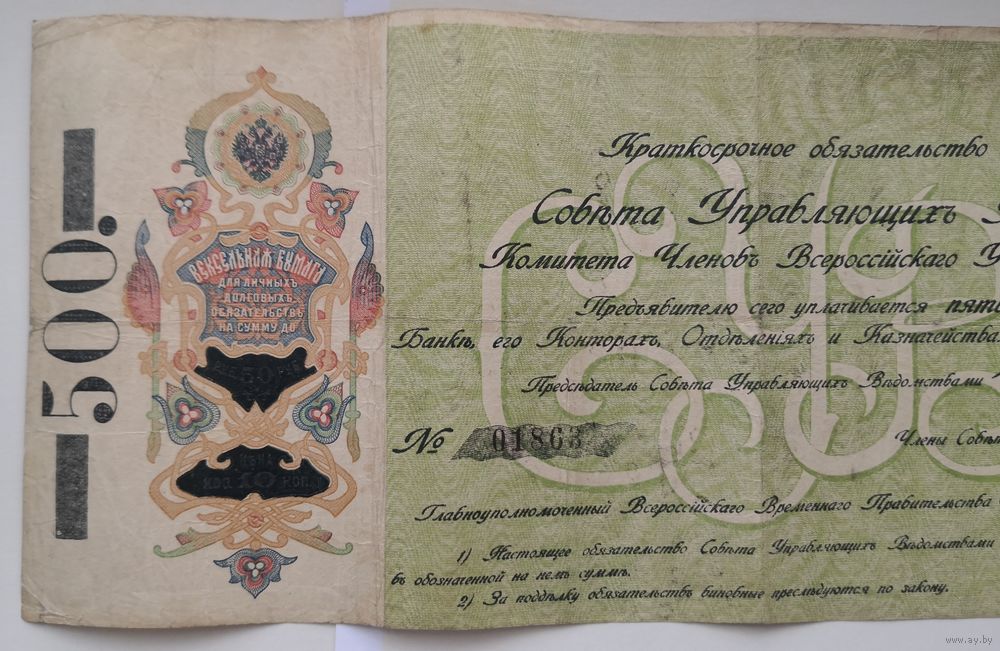 500.
ВЕКСЕЛЬНАЯ БУМАГА
ДЛЯ ЛИЧНЫХЪ
ДОЛГОВЫХЪ
ОБЯЗАТЕЛЬСТВЪ
НА СУММУ ДО
РУБ. 50 РУБ.
ЦѢНА
КОП. 10 КОП.
Краткосрочное обязательство
Совѣта Управляющихъ
Комитета Членовъ Всероссійскаго У
Предъявителю сего уплачивается пять
Банкѣ, его Конторахъ, Отдѣленіяхъ и Казначейства
Предсѣдатель Совѣта Управляющихъ Вѣдомствами
№ 01863
Члены Совѣт
Главноуполномоченный Всероссійскаго Временнаго Правительства
1) Настоящее обязательство Совѣта Управляющихъ Вѣдомствами
въ обозначенной на немъ суммѣ.
2) За поддѣлку обязательствъ виновные преслѣдуются по закону.
www.ay.by